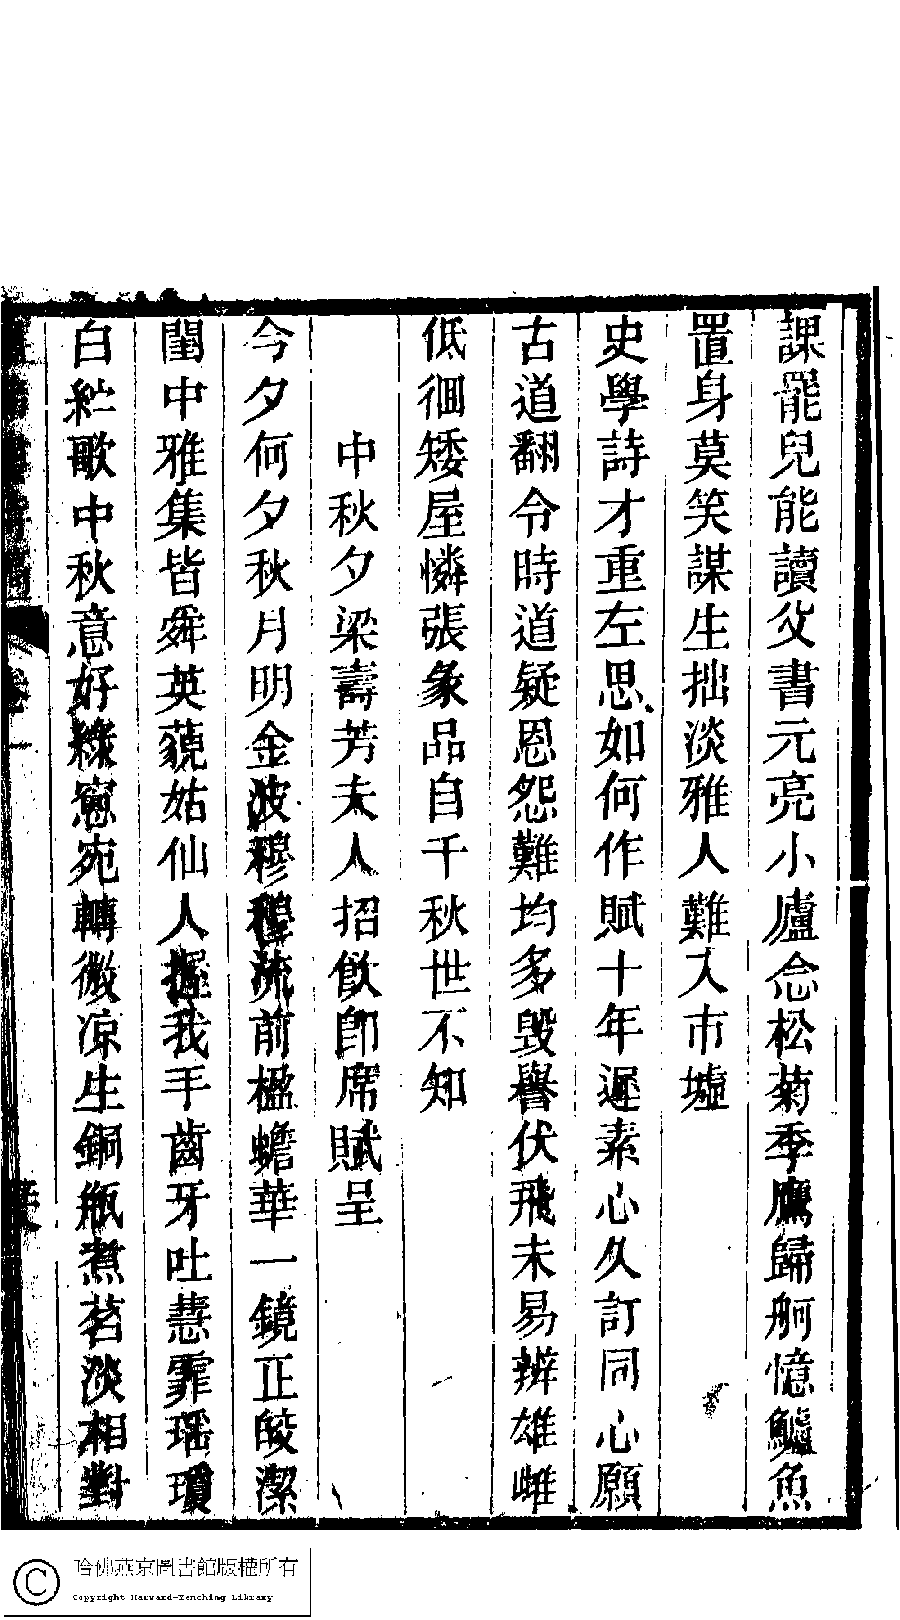 課罷兒能讀父書元亮小廬念松菊季鷹歸舸憶鱸魚
置身莫笑謀生拙淡雅人難入市墟
史學詩才重左思如何作賦十年遲素心久訂同心願
古道翻令時道疑恩怨難均多毀譽伏飛未易辨雄雌
低徊矮屋憐張彖品自千秋世不知
中秋夕梁壽芳夫人招飲卽席賦呈
今夕何夕秋月明金波穆穆流前楹蟾華一鏡正皎潔
閨中雅集皆舜英藐姑仙人握我手齒牙吐慧霏瑤瓊
白紵歌中秋意好綠窻宛轉微凉生銅瓶煮茗淡相對
卷一
哈佛燕京圖書館版權所有
Copyright Harvard-Yenching Library